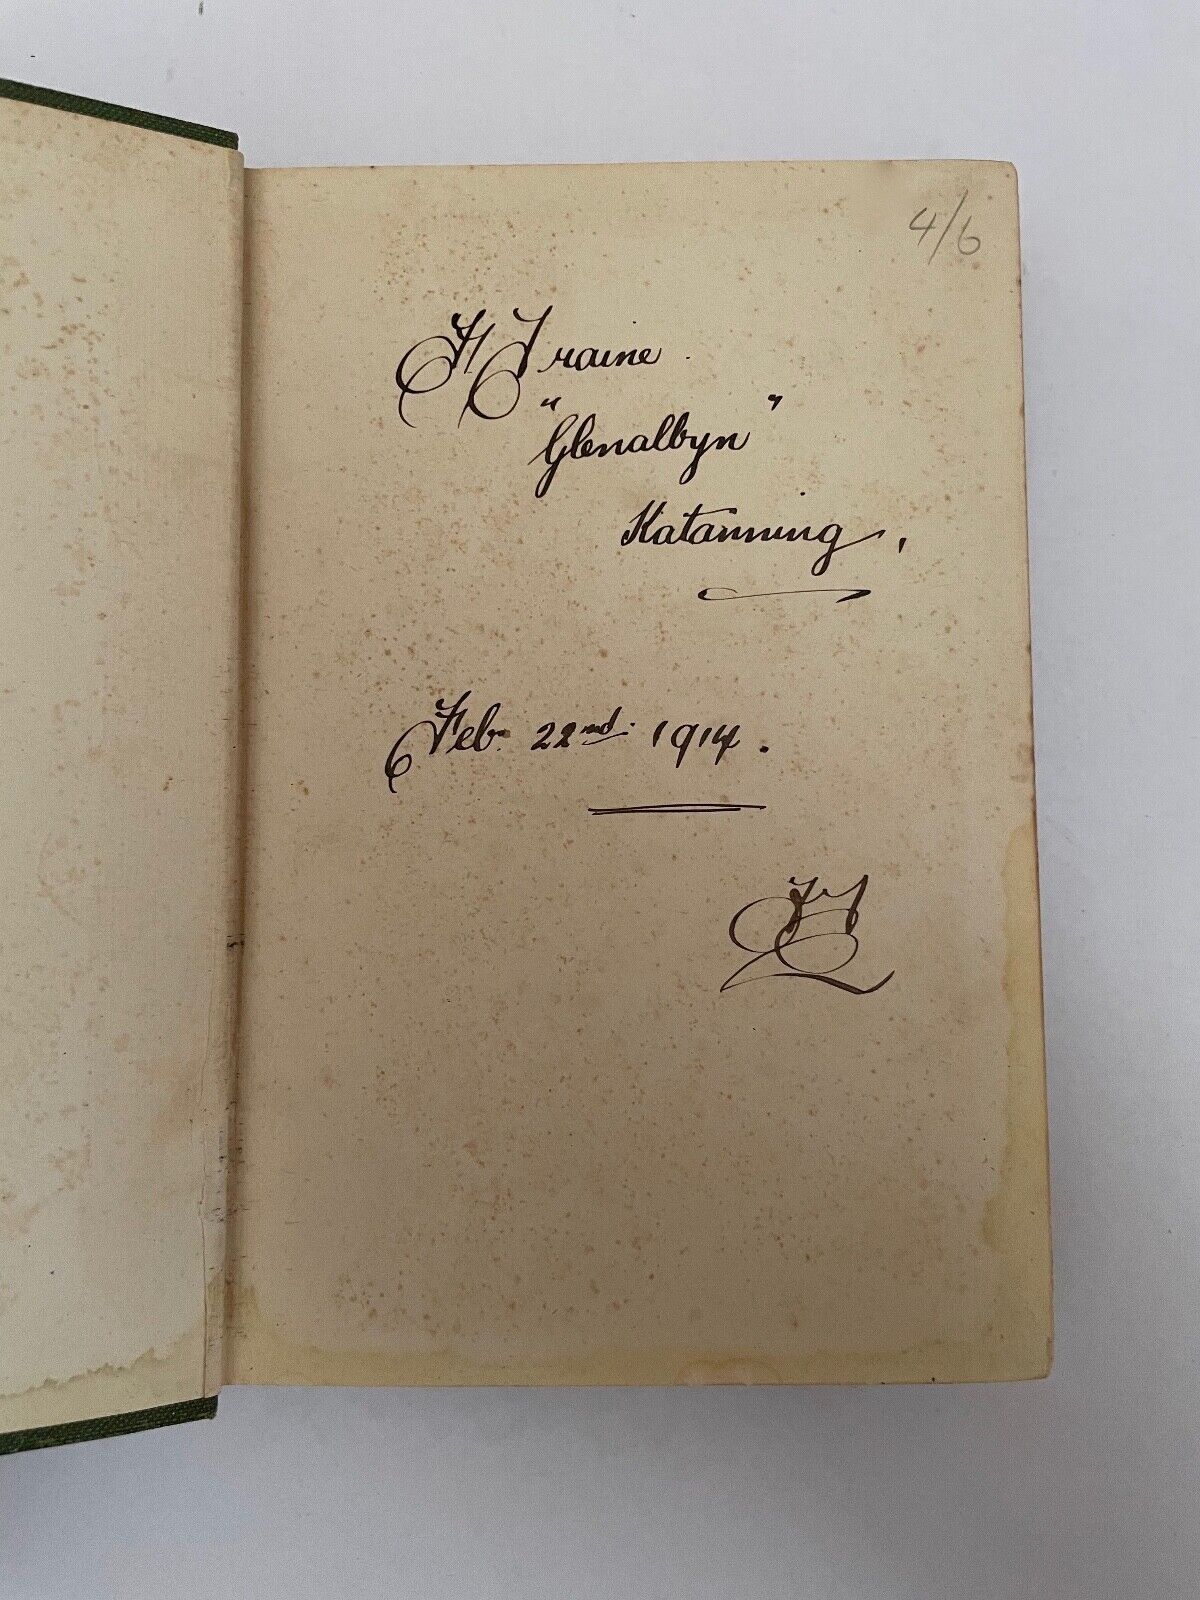 4/6
F Traine.
"Glenalbyn"
Katanning,
Feb. 22nd. 1914.
FT